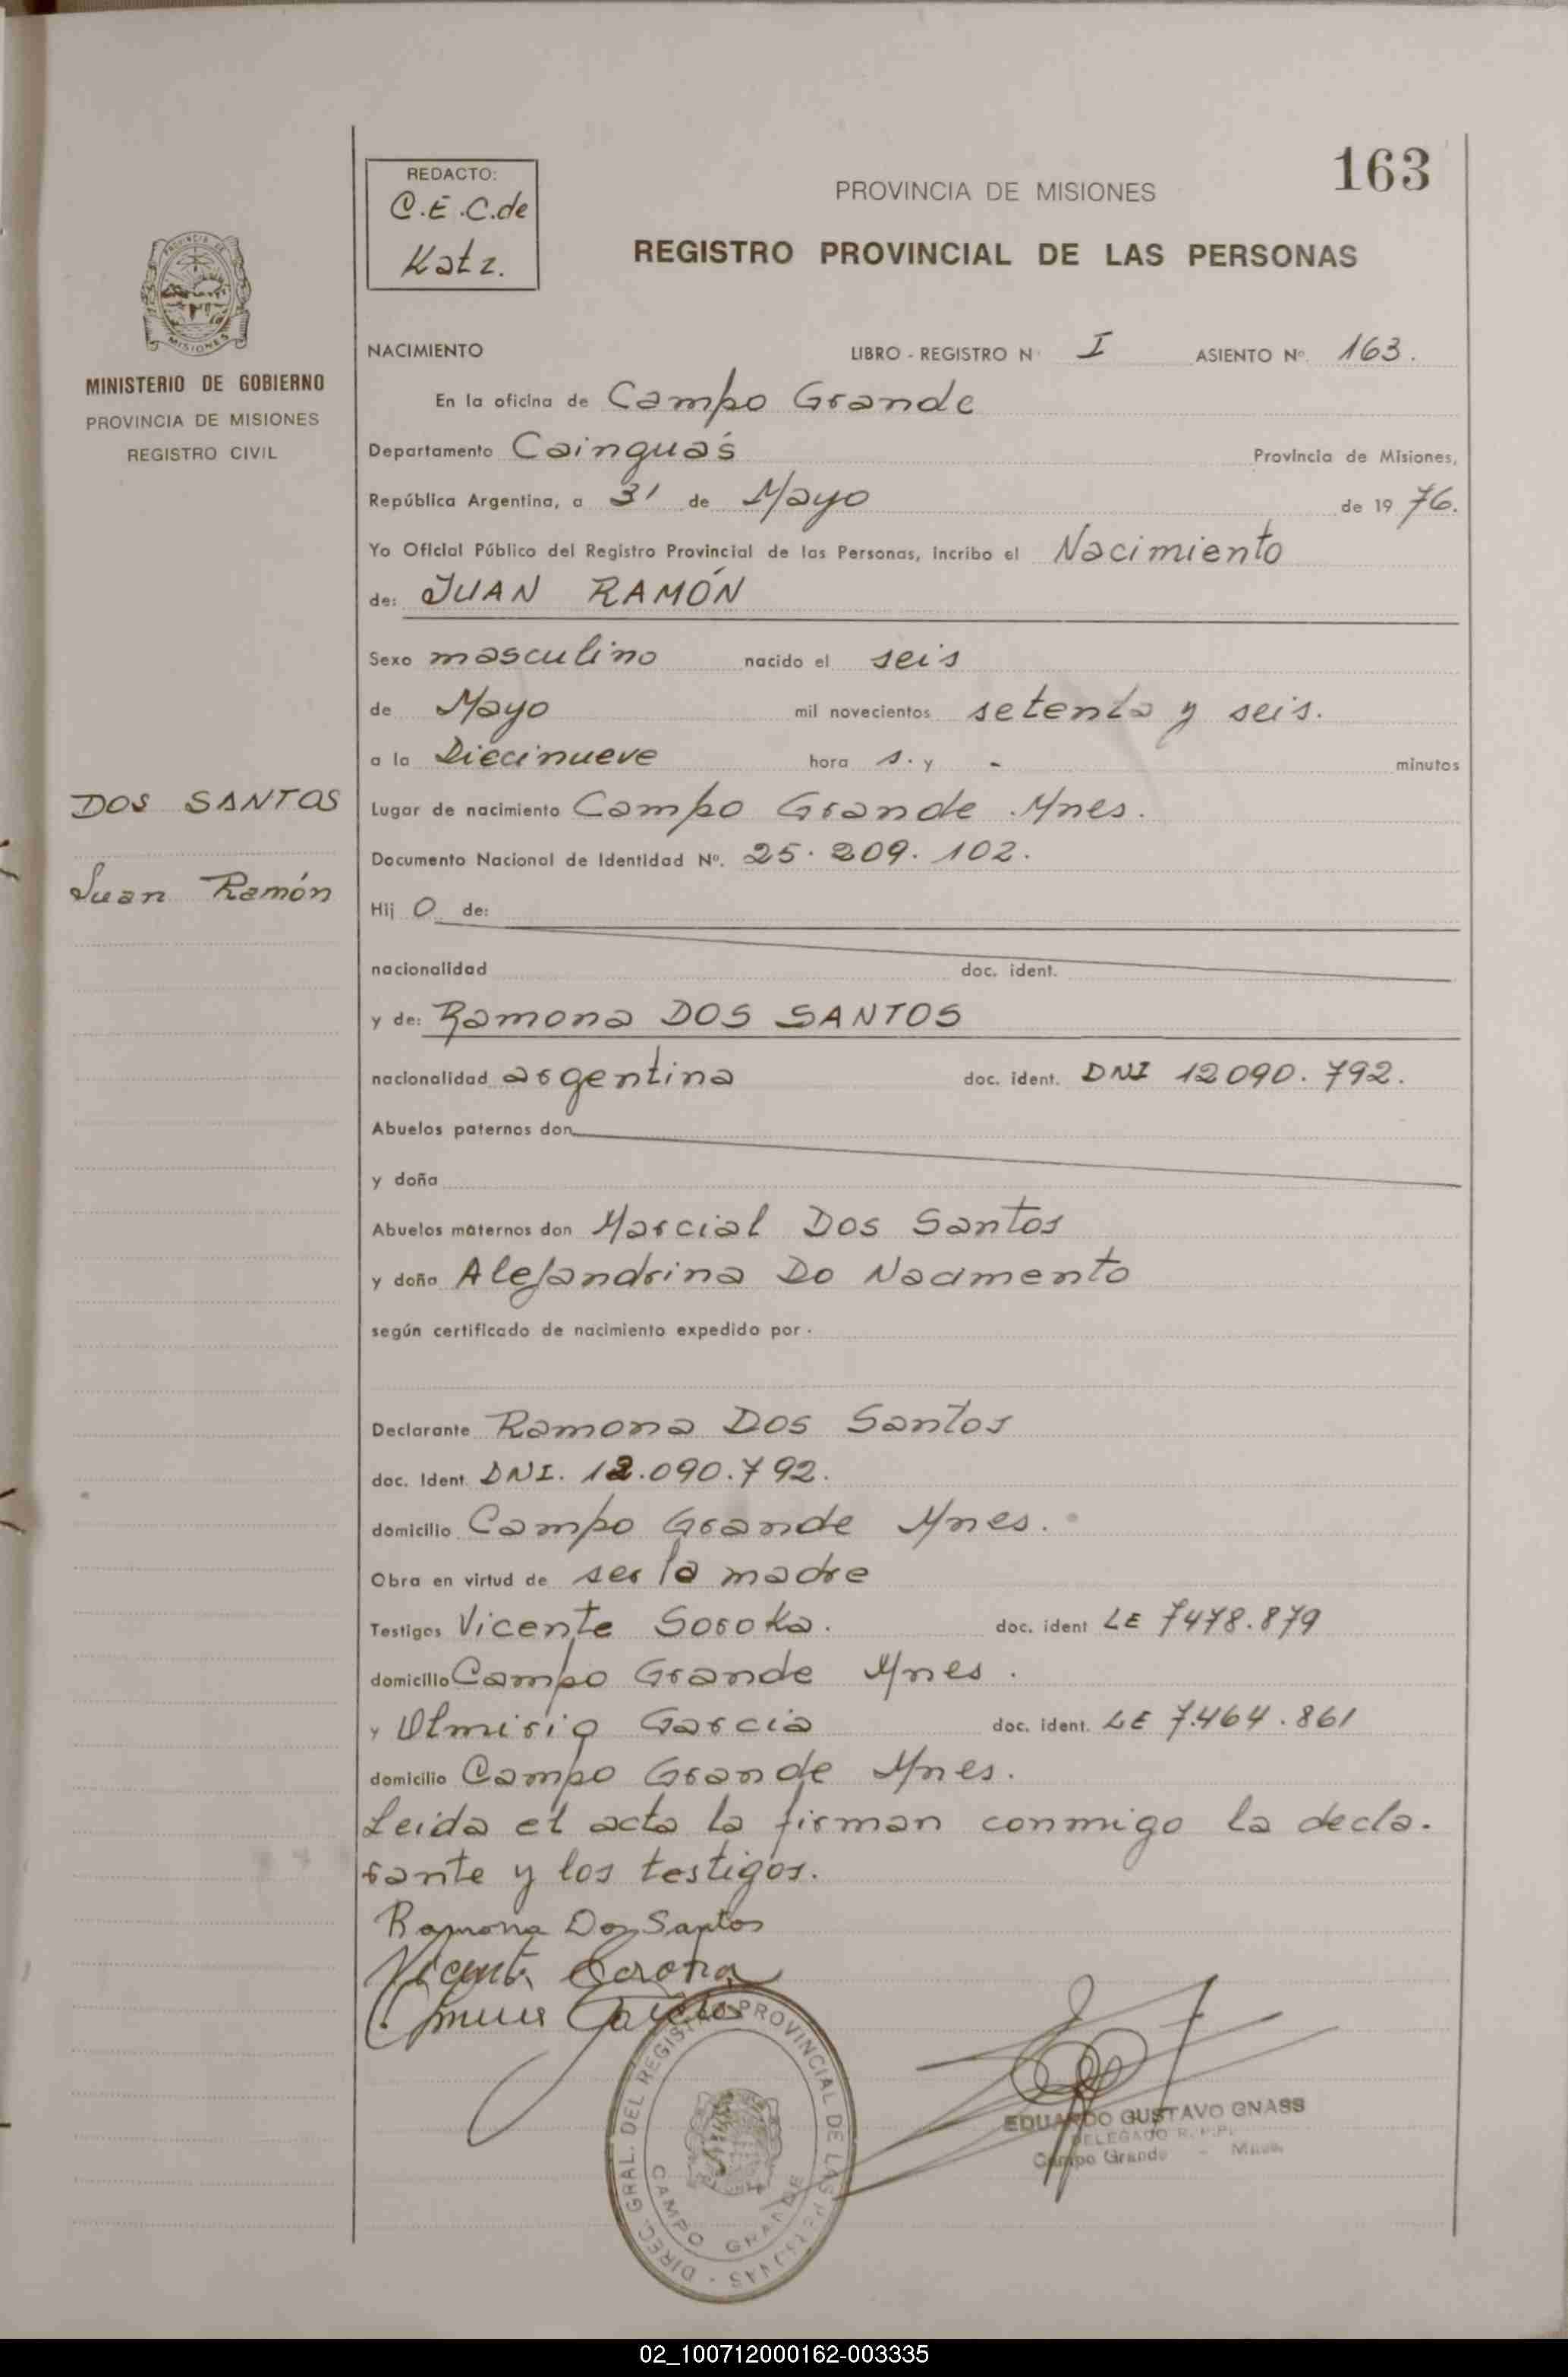 163
REDACTO:
C.E.C.de
Katz.
PROVINCIA DE MISIONES
REGISTRO PROVINCIAL DE LAS PERSONAS
MISIONES
MINISTERIO DE GOBIERNO
PROVINCIA DE MISIONES
REGISTRO CIVIL
DOS SANTOS
Juan Ramón
NACIMIENTO LIBRO - REGISTRO Nº I ASIENTO Nº. 163.
En la oficina de Campo Grande
Departamento Cainguás Provincia de Misiones,
República Argentina, a 31 de Mayo de 19 76.
Yo Oficial Público del Registro Provincial de las Personas, incribo el Nacimiento
de: JUAN RAMÓN
Sexo masculino nacido el seis
de Mayo mil novecientos setenta y seis.
a la Diecinueve hora s. y - minutos
Lugar de nacimiento Campo Grande Mnes.
Documento Nacional de Identidad Nº. 25.209.102.
Hij o de:
nacionalidad doc. ident.
y de: Ramona DOS SANTOS
nacionalidad argentina doc. ident. DNI 12090.792.
Abuelos paternos don
y doña
Abuelos maternos don Marcial Dos Santos
y doña Alejandrina Do Nacimento
según certificado de nacimiento expedido por
Declarante Ramona Dos Santos
doc. Ident. DNI. 12.090.792.
domicilio Campo Grande Mnes.
Obra en virtud de ser la madre
Testigos Vicente Soroka. doc. ident LE 7478.879
domicilio Campo Grande Mnes.
y Olmirio Garcia doc. ident. LE 7.464.861
domicilio Campo Grande Mnes.
Leida el acta la firman conmigo la decla-
rante y los testigos.
Ramona Dos Santos
Vicente Soroka
DIREC. GRAL. DEL REGISTRO PROVINCIAL DE LAS PERSONAS
CAMPO GRANDE
EDUARDO GUSTAVO GNASS
DELEGADO R. P. P.
Campo Grande - Mnes.
02_100712000162-003335